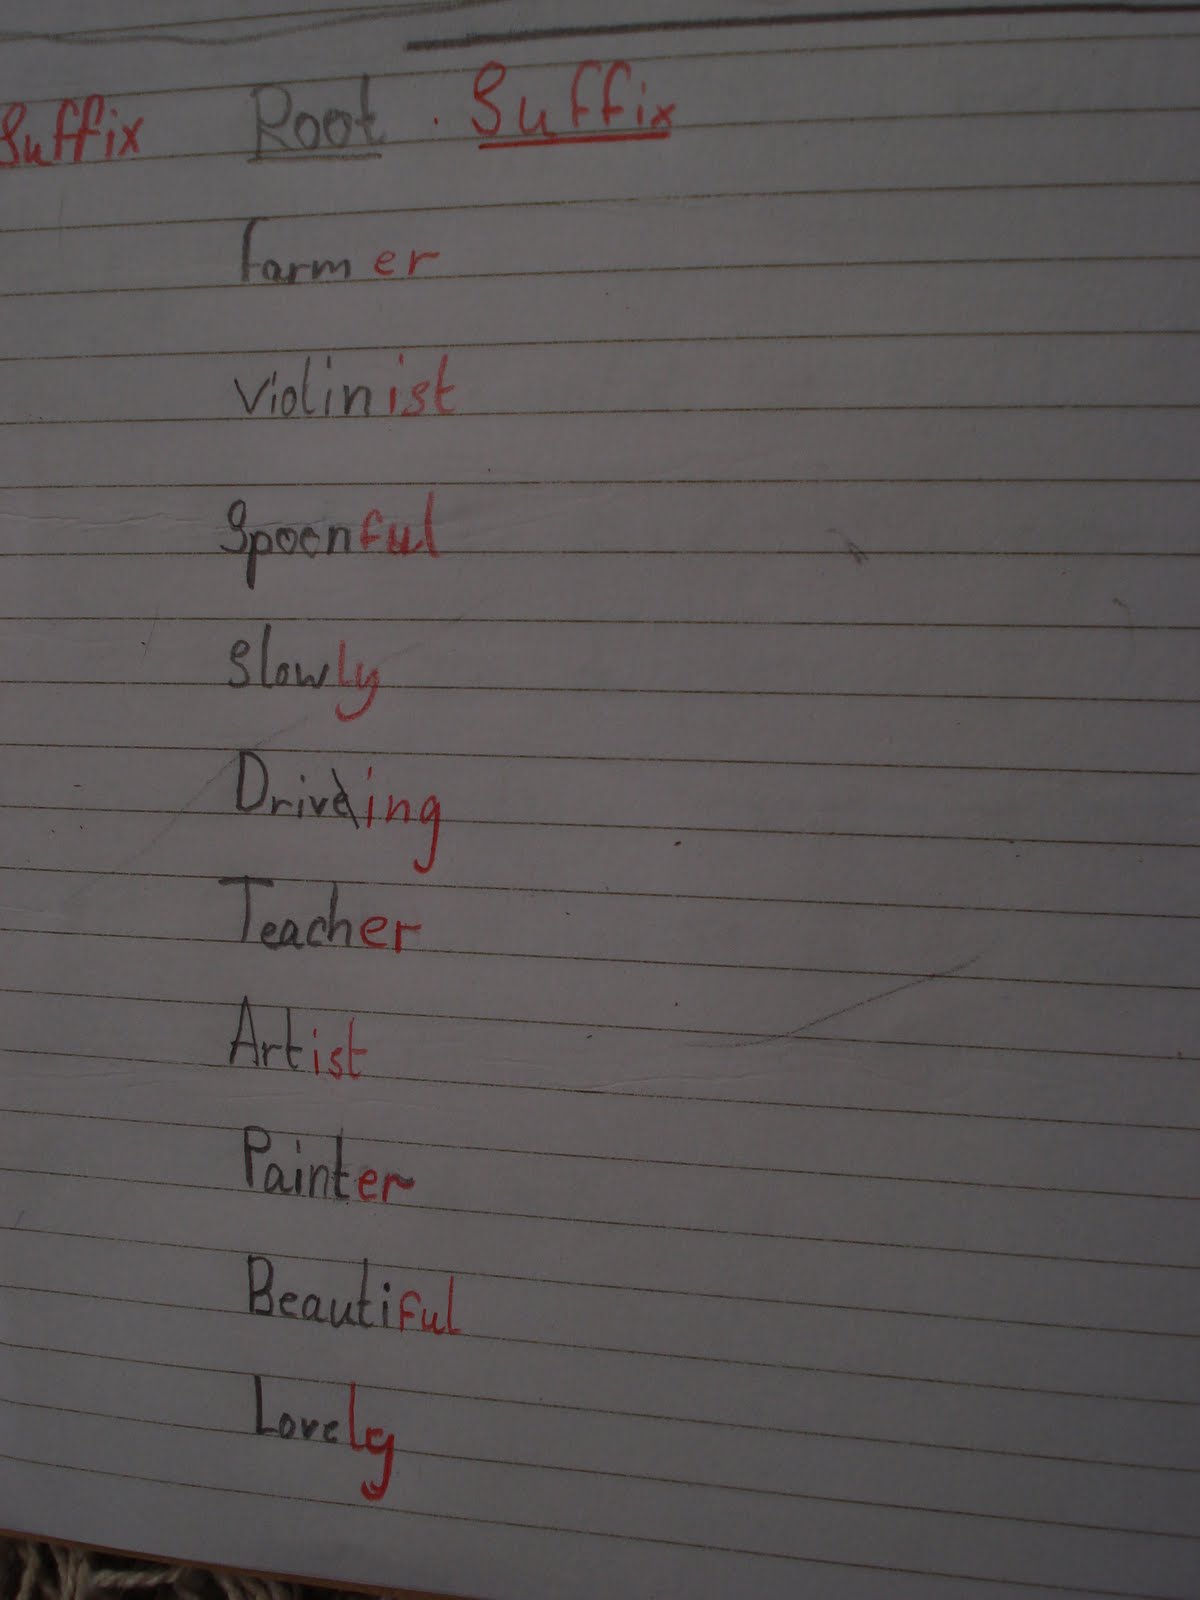 Suffix Root . Suffix
Farmer
Violinist
Spoonful
Slowly
Driveing
Teacher
Artist
Painter
Beautiful
Lovely